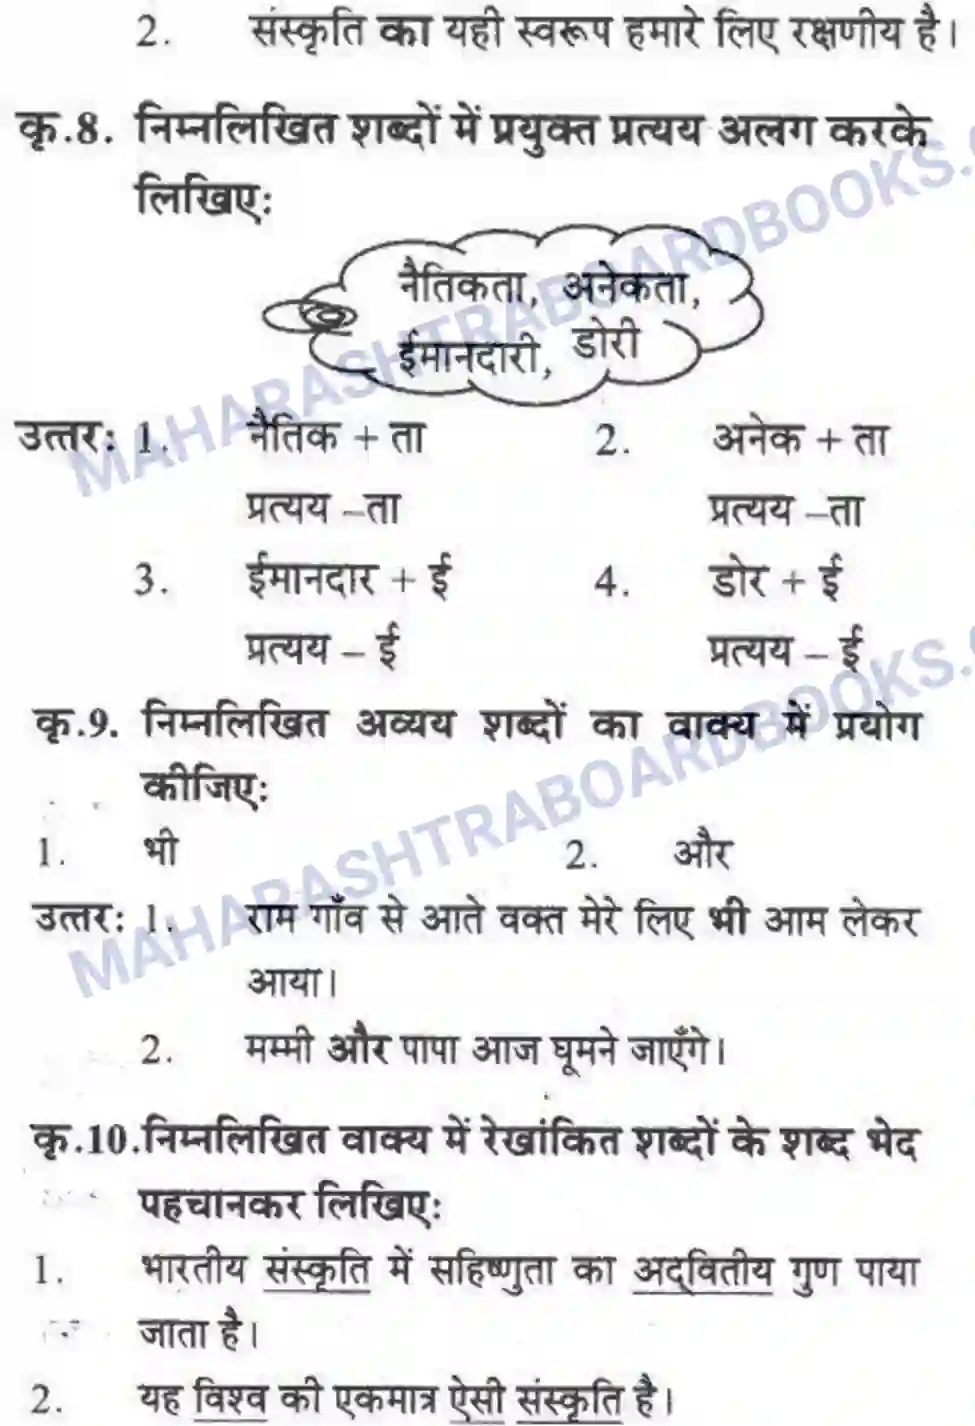 2. संस्कृति का यही स्वरूप हमारे लिए रक्षणीय है।
कृ.8. निम्नलिखित शब्दों में प्रयुक्त प्रत्यय अलग करके
लिखिए:
नैतिकता, अनेकता,
ईमानदारी, डोरी
उत्तर: 1. नैतिक + ता 2. अनेक + ता
प्रत्यय –ता प्रत्यय –ता
3. ईमानदार + ई 4. डोर + ई
प्रत्यय – ई प्रत्यय – ई
कृ.9. निम्नलिखित अव्यय शब्दों का वाक्य में प्रयोग
कीजिए:
1. भी 2. और
उत्तर: 1. राम गाँव से आते वक्त मेरे लिए भी आम लेकर
आया।
2. मम्मी और पापा आज घूमने जाएँगे।
कृ.10. निम्नलिखित वाक्य में रेखांकित शब्दों के शब्द भेद
पहचानकर लिखिए:
1. भारतीय संस्कृति में सहिष्णुता का अद्‌वितीय गुण पाया
जाता है।
2. यह विश्व की एकमात्र ऐसी संस्कृति है।
MAHARASHTRABOARDBOOKS.
MAHARASHTRABOARDBOOKS.